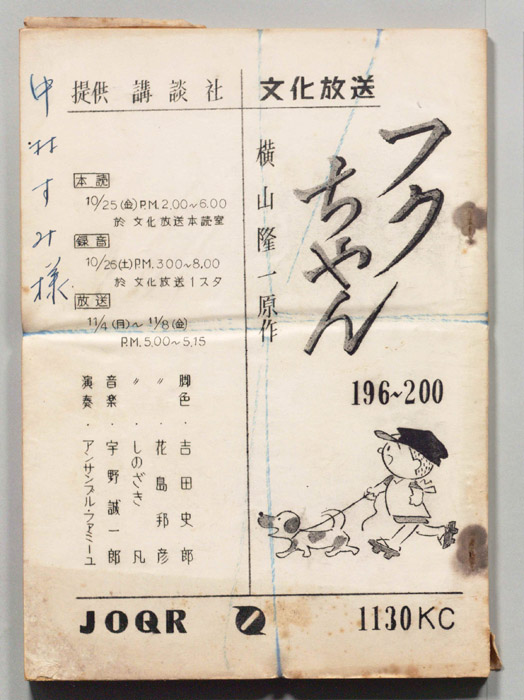 文化放送
フクちゃん
横山隆一原作
196~200
提供 講談社
中村すみ様
本読
10/25(金)P.M.2.00~6.00
於 文化放送本読室
録音
10/26(土)P.M.3.00~8.00
於 文化放送1スタ
放送
11/4(月)~11/8(金)
P.M.5.00~5.15
脚色・吉田史郎
〃・花島邦彦
〃・しのざき凡
音楽・宇野誠一郎
演奏・アンサンブル・ファミーユ
JOQR
1130KC